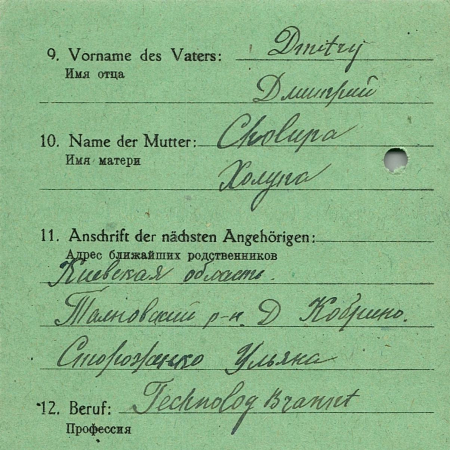 9. Vorname des Vaters: Dmitrij
Имя отца
Дмитрий
10. Name der Mutter: Cholupa
Имя матери
Холупа
11. Anschrift der nächsten Angehörigen:
Адрес ближайших родственников
Киевская область.
Тальновский р-н. Д Кобрино.
Стороженко Ульяна
12. Beruf: Technolog
Профессия